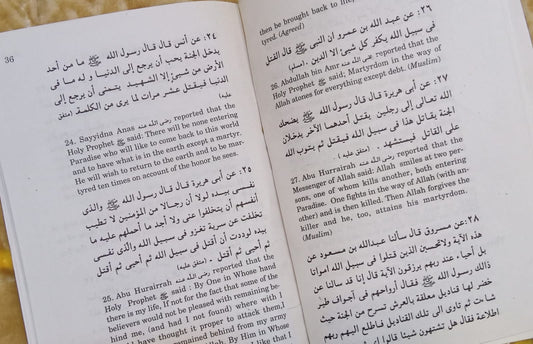 36
٢٤. عن أنس قال قال رسول الله ﷺ ما من أحد
يدخل الجنة يحب أن يرجع إلى الدنيا و له ما في
الأرض من شيئ إلا الشهيد يتمنى أن يرجع إلى
الدنيا فيقتل عشر مرات لما يرى من الكلمة. (متفق
عليه)
24. Sayyidna Anas رضى الله عنه reported that the
Holy Prophet ﷺ said: There will be none entering
Paradise who will like to come back to this world
and to have what is in the earth except a martyr.
He will wish to return to the earth and to be mar-
tyred ten times on account of the honor he sees.
٢٥. عن أبي هريرة قال قال رسول الله ﷺ والذى
نفسي بيده لولا أن رجالا من المؤمنين لا تطيب
أنفسهم أن يتخلفوا عنى ولا أجد ما أحملهم عليه ما
تخلفت عن سرية تغزو في سبيل الله والذى نفسى
بيده لوددت أن أقتل في سبيل الله ثم أحيى ثم أقتل
ثم أحيى ثم أقتل. (متفق عليه)
25. Abu Hurairrah رضى الله عنه reported that the
Holy Prophet ﷺ said: By One in Whose hand
there is my life, If not for the fact that some of the
believers would not be pleased with remaining be-
hind me, (and I had not found) where with I
could have thought it proper to attach them,I
remained behind from my army
Allah. By Him in Whose
like that I
then be brought back to life,
tyred (Agreed)
٢٦. عن عبد الله بن عمرو ان النبى ﷺ قال القتل
فى سبيل الله يكفر كل شيئ الا الدين. (مسلم)
26. Abdullah bin Amr رضى الله عنه reported that the
Holy Prophet ﷺ said; Martyrdom in the way of
Allah atones for everything except debt. (Muslim)
٢٧. عن أبى هريرة قال قال رسول الله ﷺ يضحك
الله تعالى إلى رجلين يقتل أحدهما الآخر يدخلان
الجنة يقاتل هذا في سبيل الله فيقتل ثم يتوب الله
على القاتل فيستشهد. (متفق عليه)
27. Abu Hurrairah رضى الله عنه reported that the
Messenger of Allah said: Allah smiles at two per-
sons, one of whom killed another, both entering
Paradise. One fights in the way of Allah (with an-
other) and is then killed. Then Allah forgives the
killer and he, too, attains his martyrdom.
(Muslim)
٢٨. عن مسروق قال سألنا عبدالله بن مسعود عن
هذه الآية ولاتحسبن الذين قتلوا في سبيل الله امواتا
بل أحياء عند ربهم يرزقون الآية قال إنا قد سألنا عن
ذالك رسول الله ﷺ فقال أرواحهم في أجواف طير
خضر لها قناديل معلقة بالعرش تسرح من الجنة حيث
شاءت ثم تاوى الى تلك القناديل فاطلع اليهم ربهم
اطلاعة فقال هل تشتهون شيئا قالوا أي